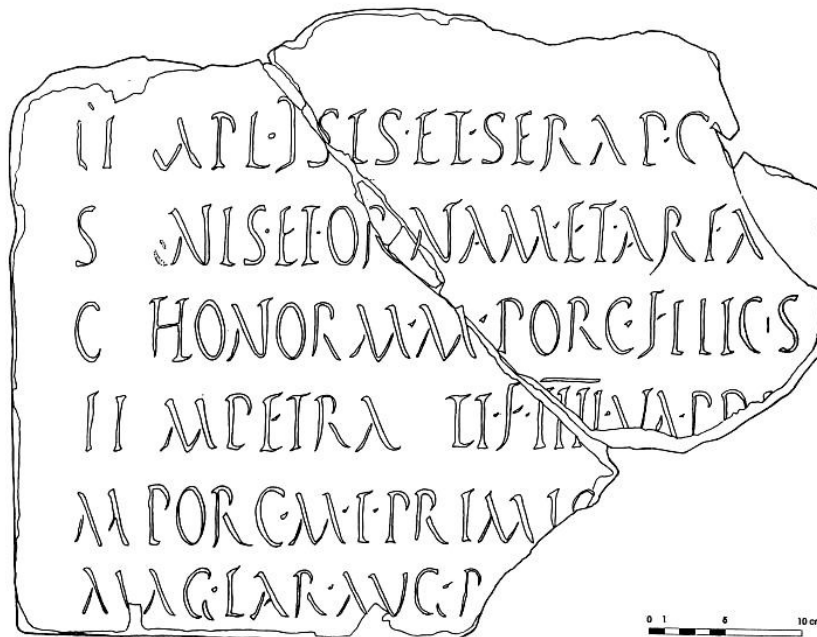 II APL·ISIS·ET·SERAP·C
S NIS·ET·ORNAM·ET·AREA
C HONOR·M·M·PORC·FELIC·S
II M PETRA TI·F·IIII·V·A·P
M PORC·M·L·PRIMIG
MAG·LAR·AVG·P
0 1 5 10 cm